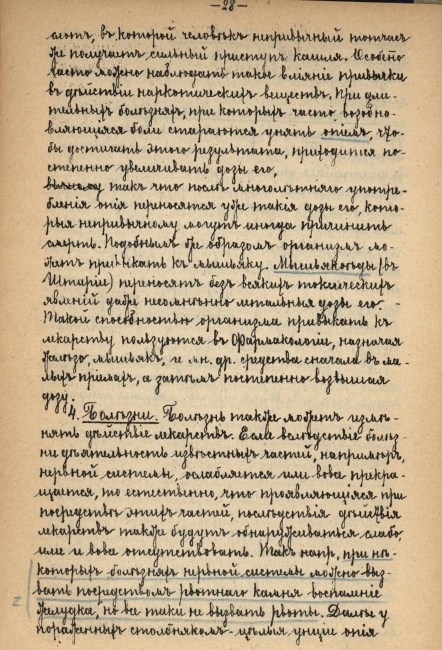 —28—
лютъ, въ которой человѣкъ непривычный тотчасъ
же получитъ сильный приступъ кашля. Особенно
часто можно наблюдать такое вліяніе привычки
въ дѣйствіи наркотическихъ веществъ. При дли-
тельныхъ болѣзняхъ, при которыхъ часто возобно-
вляющіяся боли стараются унять опіемъ, что-
бы достигать этого результата, приходится по-
степенно увеличивать дозы его,
такъ что послѣ многолѣтняго употре-
бленія опія переносятся уже такія дозы его, кото-
рыя непривычному могутъ иногда причинить
смерть. Подобнымъ же образомъ организмъ мо-
жетъ привыкать къ мышьяку. Мышьякоѣды (въ
Штиріи) переносятъ безъ всякихъ токсическихъ
явленій даже несомнѣнно летальныя дозы его. –
Такой способностью организма привыкать къ
лекарству пользуются въ Фармакологіи, назначая
желѣзо, мышьякъ, и мн. др. средства сначала въ ма-
лыхъ пріемахъ, а затѣмъ постепенно возвышая
дозу.
4. Болѣзни. Болѣзнь также можетъ измѣ-
нять дѣйствіе лекарствъ. Если вслѣдствіе болѣз-
ни дѣятельность извѣстныхъ частей, напримѣръ,
нервной системы, ослабляется или вовсе прекра-
щается, то естественно, что проявляющіяся при
посредствѣ этихъ частей, послѣдствія дѣйствія
лекарствъ также будутъ обнаруживаться слабо,
или и вовсе отсутствовать. Такъ напр, при нѣ-
которыхъ болѣзняхъ нервной системы можно выз-
вать посредствомъ рвотнаго камня воспаленіе
желудка, но все таки не вызвать рвоты. Далѣе у
пораженныхъ столбнякомъ цѣлыя унціи опія